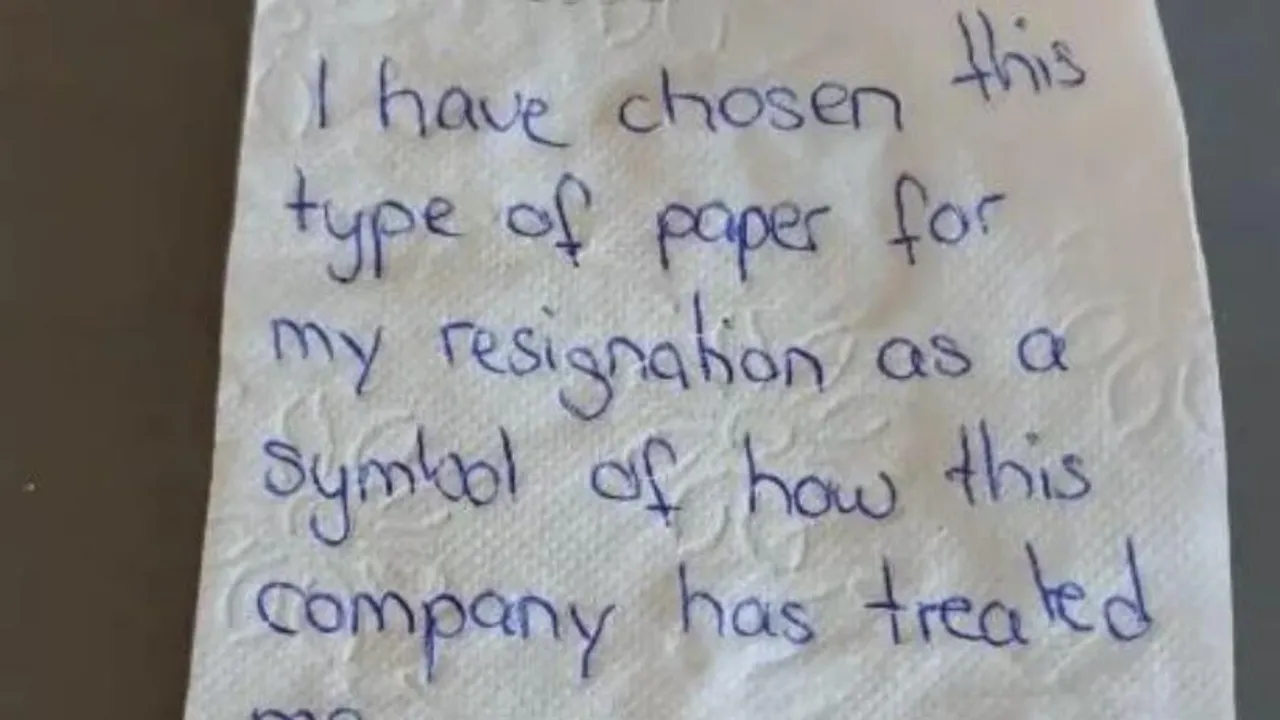 I have chosen this
type of paper for
my resignation as a
symbol of how this
company has treated
me